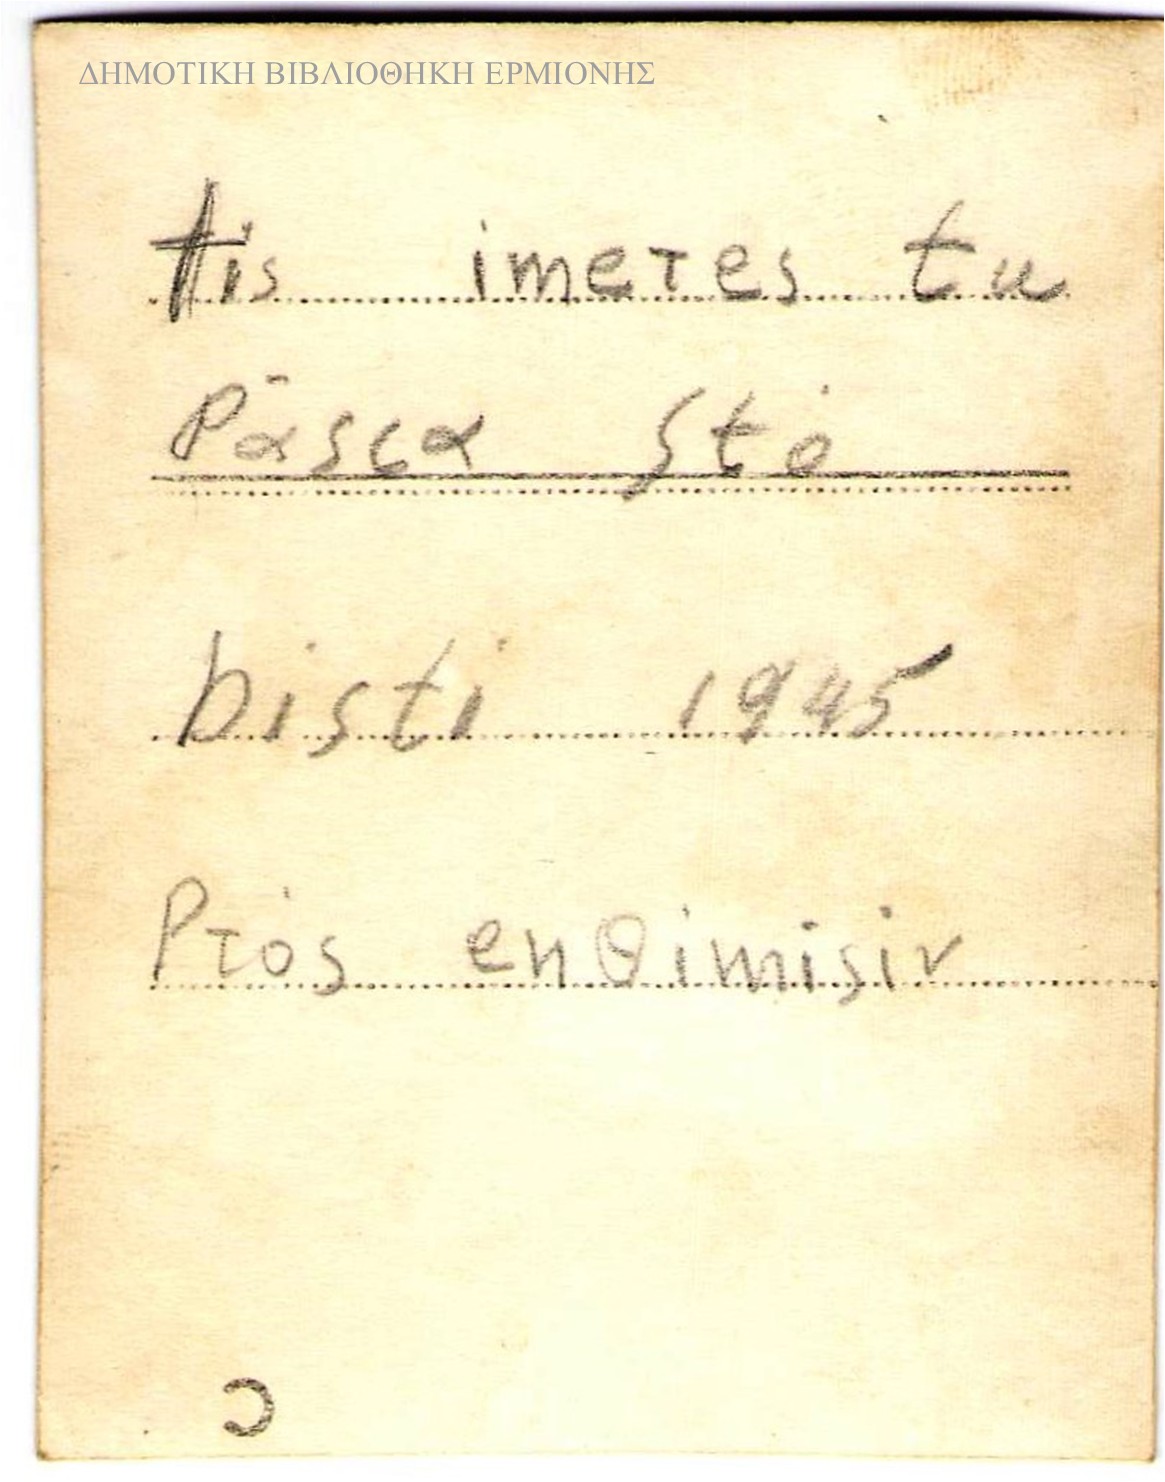 ΔΗΜΟΤΙΚΗ ΒΙΒΛΙΟΘΗΚΗ ΕΡΜΙΟΝΗΣ
tis imeτes tu
Pāsca stó
bisti 1945
Pτós enθimisiν